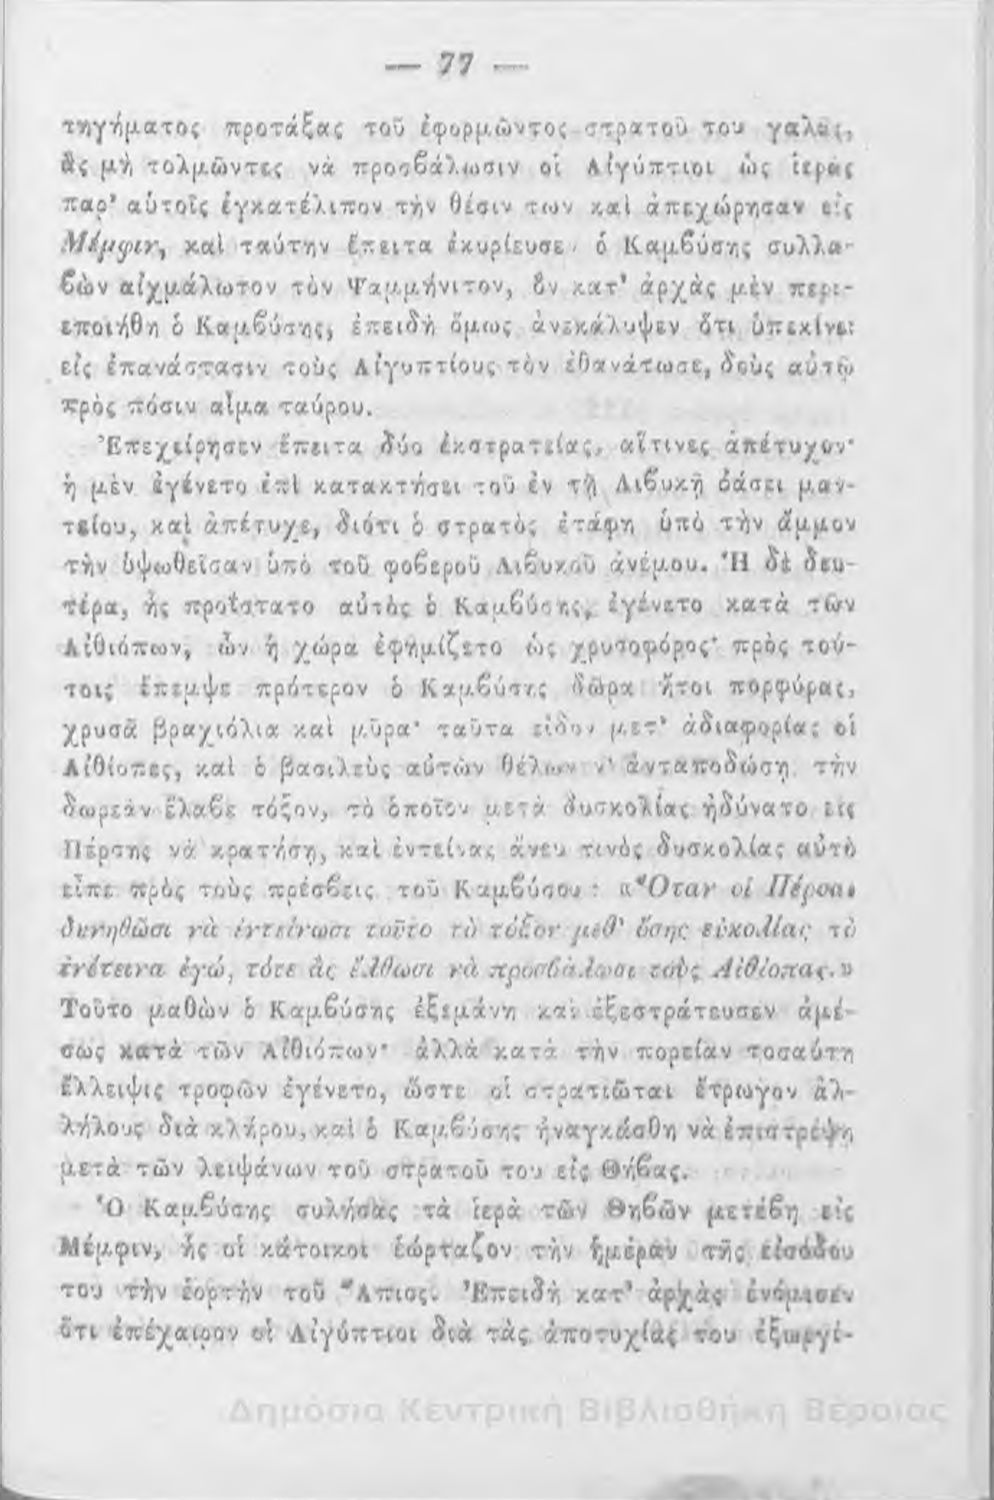 — 77 —
τηγήματος προτάξας τοῦ ἐφορμῶντος στρατοῦ του γαλᾶς,
ἃς μὴ τολμῶντες νὰ προσβάλωσιν οἱ Αἰγύπτιοι ὡς ἱερὰς
παρ' αὐτοῖς ἐγκατέλιπον τὴν θέσιν των καὶ ἀπεχώρησαν εἰς
Μέμφιν, καὶ ταύτην ἔπειτα ἐκυρίευσε ὁ Καμβύσης συλλα-
βὼν αἰχμάλωτον τὸν Ψαμμήνιτον, ὃν κατ' ἀρχὰς μὲν περι-
εποιήθη ὁ Καμβύσης, ἐπειδὴ ὅμως ἀνεκάλυψεν ὅτι ὑπεκίνει
εἰς ἐπανάστασιν τοὺς Αἰγυπτίους τὸν ἐθανάτωσε, δοὺς αὐτῷ
πρὸς πόσιν αἷμα ταύρου.
Ἐπεχείρησεν ἔπειτα δύο ἐκστρατείας, αἵτινες ἀπέτυχον·
ἡ μὲν ἐγένετο ἐπὶ κατακτήσει τοῦ ἐν τῇ Λιβυκῇ ὀάσει μαν-
τείου, καὶ ἀπέτυχε, διότι ὁ στρατὸς ἐτάφη ὑπὸ τὴν ἄμμον
τὴν ὑψωθεῖσαν ὑπὸ τοῦ φοβεροῦ Λιβυκοῦ ἀνέμου. Ἡ δὲ δευ-
τέρα, ἧς προΐστατο αὐτὸς ὁ Καμβύσης, ἐγένετο κατὰ τῶν
Αἰθιόπων, ὧν ἡ χώρα ἐφημίζετο ὡς χρυσοφόρος· πρὸς τού-
τοις ἔπεμψε πρότερον ὁ Καμβύσης δῶρα ἤτοι πορφύρας,
χρυσᾶ βραχιόλια καὶ μῦρα· ταῦτα εἶδον μετ' ἀδιαφορίας οἱ
Αἰθίοπες, καὶ ὁ βασιλεὺς αὐτῶν θέλων ν' ἀνταποδώσῃ τὴν
δωρεὰν ἔλαβε τόξον, τὸ ὁποῖον μετὰ δυσκολίας ἠδύνατο εἷς
Πέρσης νὰ κρατήσῃ, καὶ ἐντείνας ἄνευ τινὸς δυσκολίας αὐτὸ
εἶπε πρὸς τοὺς πρέσβεις τοῦ Καμβύσου : «Ὅταν οἱ Πέρσαι
δυνηθῶσι νὰ ἐντείνωσι τοῦτο τὸ τόξον μεθ' ὅσης εὐκολίας τὸ
ἐνέτεινα ἐγώ, τότε ἂς ἔλθωσι νὰ προσβάλωσι τοὺς Αἰθίοπας.»
Τοῦτο μαθὼν ὁ Καμβύσης ἐξεμάνη καὶ ἐξεστράτευσεν ἀμέ-
σως κατὰ τῶν Αἰθιόπων· ἀλλὰ κατὰ τὴν πορείαν τοσαύτη
ἔλλειψις τροφῶν ἐγένετο, ὥστε οἱ στρατιῶται ἔτρωγον ἀλ-
λήλους διὰ κλήρου, καὶ ὁ Καμβύσης ἠναγκάσθη νὰ ἐπιστρέψῃ
μετὰ τῶν λειψάνων τοῦ στρατοῦ του εἰς Θήβας.
Ὁ Καμβύσης συλήσας τὰ ἱερὰ τῶν Θηβῶν μετέβη εἰς
Μέμφιν, ἧς οἱ κάτοικοι ἑώρταζον τὴν ἡμέραν τῆς εἰσόδου
του τὴν ἑορτὴν τοῦ Ἄπιος. Ἐπειδὴ κατ' ἀρχὰς ἐνόμισεν
ὅτι ἐπέχαιρον οἱ Αἰγύπτιοι διὰ τὰς ἀποτυχίας του ἐξωργί-
Δημόσια Κεντρική Βιβλιοθήκη Βέροιας